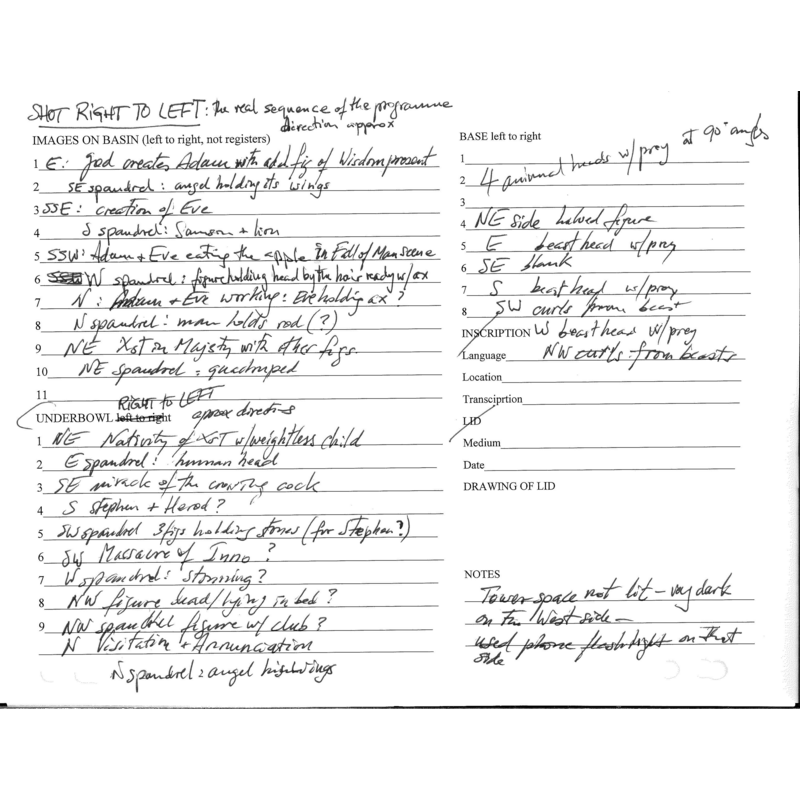 SHOT RIGHT TO LEFT: the real sequence of the programme
direction approx
IMAGES ON BASIN (left to right, not registers)
1 E: God creates Adam with addl fig of Wisdom present
2 SE spandrel: angel holding its wings
3 SSE: creation of Eve
4 S spandrel: Samson + lion
5 SSW: Adam + Eve eating the apple in Fall of Man scene
6 SSW W spandrel: figure holding head by the hair ready w/ ax
7 N: Adam + Eve working: Eve holding ax?
8 N spandrel: man holds rod (?)
9 NE Xst in Majesty with other figs.
10 NE spandrel: quadruped
11
RIGHT TO LEFT
UNDERBOWL left to right aprox directions
1 NE Nativity of XsT w/weightless child
2 E spandrel: human head
3 SE miracle of the crowing cock
4 S Stephen + Herod?
5 SW spandrel 3 figs holding stones (for Stephen?)
6 SW Massacre of Inno?
7 W spandrel: stoning?
8 NW figure dead/lying in bed?
9 NW spandrel figure w/ club?
N Visitation + Annunciation
N spandrel: angel high wings
BASE left to right
1
2 4 animal heads w/prey at 90° angles
3
4 NE side halved figure
5 E beast head w/prey
6 SE blank
7 S beast head w/prey
8 SW curls from beast
INSCRIPTION W beast head w/prey
Language NW curls from beasts
Location
Transciprtion
LID
Medium
Date
DRAWING OF LID
NOTES
Tower space not lit – very dark
on the West side –
used phone flashlight on that
side